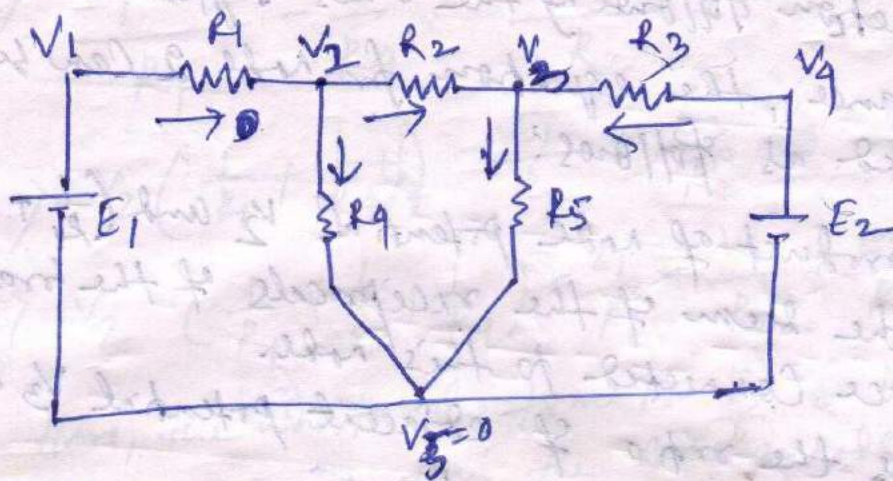 V1 R1 V2 R2 V3 R3 V4
E1 R4 R5 E2
V5=0